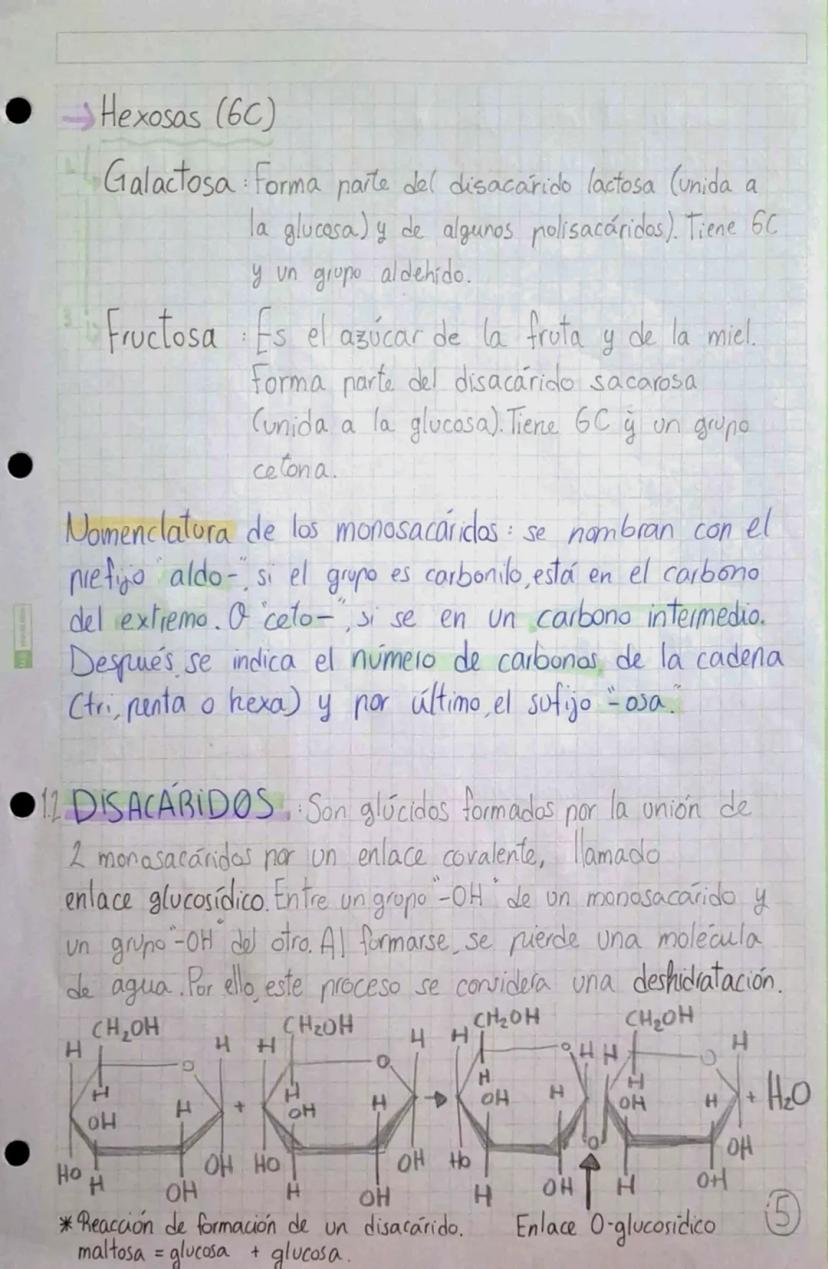 → Hexosas (6C)
Galactosa : Forma parte del disacárido lactosa (unida a
la glucosa) y de algunos polisacáridos). Tiene 6C
y un grupo aldehído.
Fructosa : Es el azúcar de la fruta y de la miel.
Forma parte del disacárido sacarosa
(unida a la glucosa). Tiene 6C y un grupo
cetona.
Nomenclatura de los monosacáridos : se nombran con el
prefijo "aldo-", si el grupo es carbonilo, está en el carbono
del extremo. O "ceto-", si se en un carbono intermedio.
Después, se indica el número de carbonos, de la cadena
(tri, penta o hexa) y por último, el sufijo "-osa."
1.2 DISACÁRIDOS. : Son glúcidos formados por la unión de
2 monosacáridos por un enlace covalente, llamado
enlace glucosídico. Entre un grupo "-OH" de un monosacárido y
un grupo "-OH" del otro. Al formarse, se pierde una molécula
de agua. Por ello, este proceso se considera una deshidratación.
CH2OH CH2OH CH2OH CH2OH
H O H H O H H O H H O H
H H H H
OH H + OH H → OH H OH H + H2O
HO OH HO OH HO O OH
H OH H OH H OH H OH
*Reacción de formación de un disacárido. Enlace O-glucosídico
maltosa = glucosa + glucosa.
5